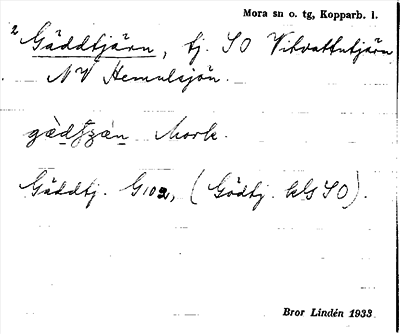 Mora sn o. tg, Kopparb. l.
2 Gäddtjärn, tj. SO Vitvattutjärn
NV Hemulsjön.
gæ̀dt̬ʒǽn Mork.
Gäddtj. G102, (Gödtj. kls SO).
Bror Lindén 1933